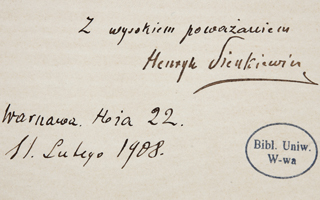 Z wysokiem poważaniem
Henryk Sienkiewicz
Warszawa. Hoża 22.
11. Lutego 1908.
Bibl. Uniw.
W-wa